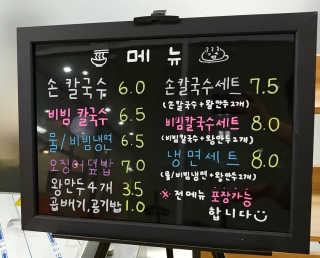 메뉴
손칼국수 6.0
비빔칼국수 6.5
물/비빔냉면 6.5
오징어덮밥 7.0
왕만두4개 3.5
곱배기,공기밥 1.0
손칼국수세트 7.5
(손칼국수+왕만두2개)
비빔칼국수세트 8.0
(비빔칼국수+왕만두2개)
냉면세트 8.0
(물/비빔냉면+왕만두2개)
※ 전메뉴 포장가능
합니다